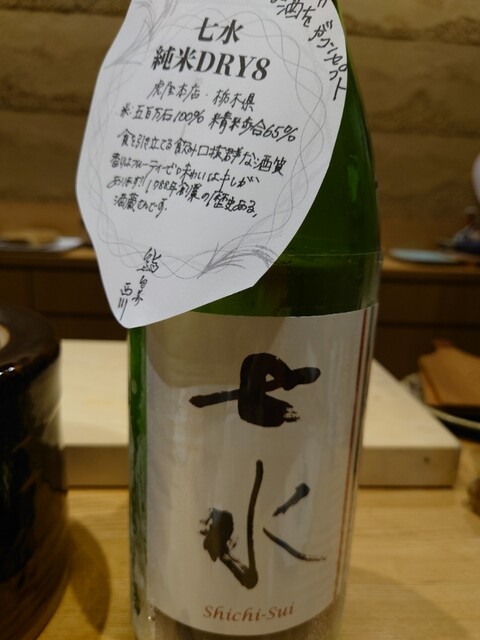 七水
純米DRY8
虎屋本店・栃木県
米:五百万石100% 精米歩合65%
食を引き立てる飲み口抜群な酒質
香りはフルーティーで味わいはキレが
あります!! 1788年創業の歴史ある、
酒蔵さんです。
西川
七水
Shichi-Sui